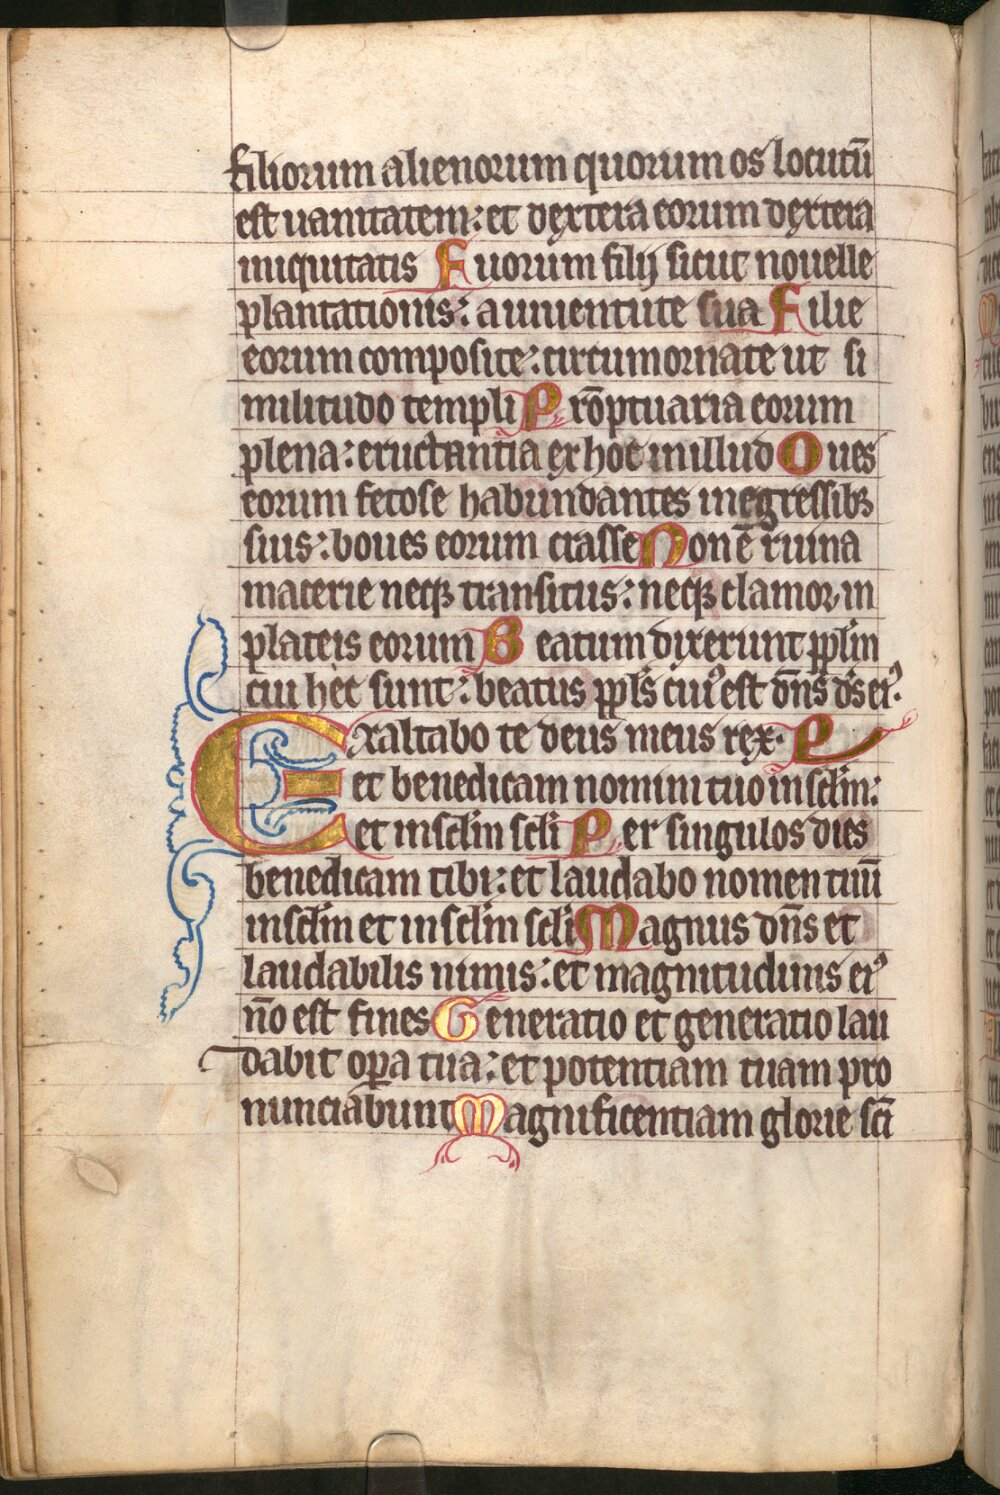 filiorum alienorum quorum os locutū
est uanitatem: et dextera eorum dextera
iniquitatis Fuorum filij sicut nouelle
plantationis: a iuuentute sua Filie
eorum composite: circumornate ut si
militudo templi Prōptuaria eorum
plena: eructantia ex hoc in illud Oues
eorum fetose habundantes in egressibꝫ
suis: boues eorum crasse Non ē ruina
macerie neqꝫ transitus: neqꝫ clamor in
plateis eorum Beatum dixerunt ppl̄m
cui hec sunt: beatus ppl̄s cuiꝰ est dn̄s ds̄ eiꝰ.
Exaltabo te deus meus rex.
et benedicam nomini tuo in sc̄lm:
et in sc̄lm sc̄li Per singulos dies
benedicam tibi: et laudabo nomen tuū
in sc̄lm et in sc̄lm sc̄li Magnus dn̄s et
laudabilis nimis: et magnitudinis eiꝰ
nō est fines Generatio et generatio lau
dabit oꝑa tua: et potentiam tuam pro
nunciabunt Magnificentiam glorie sc̄i